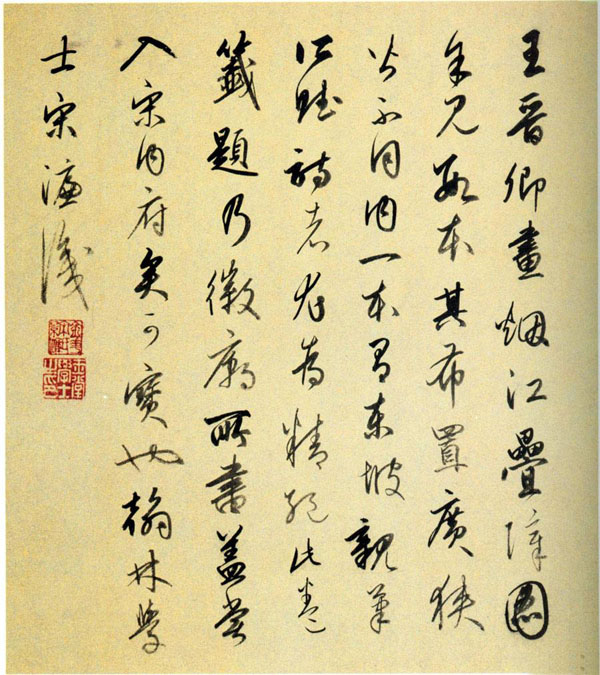 王晉卿畫烟江疊障圖
余見數本其布置廣狹
不同內一本有東坡親筆
所賦詩者尤為精絕此卷
籤題乃徽廟所書蓋嘗
入宋內府矣可寶也翰林學
士宋濂識